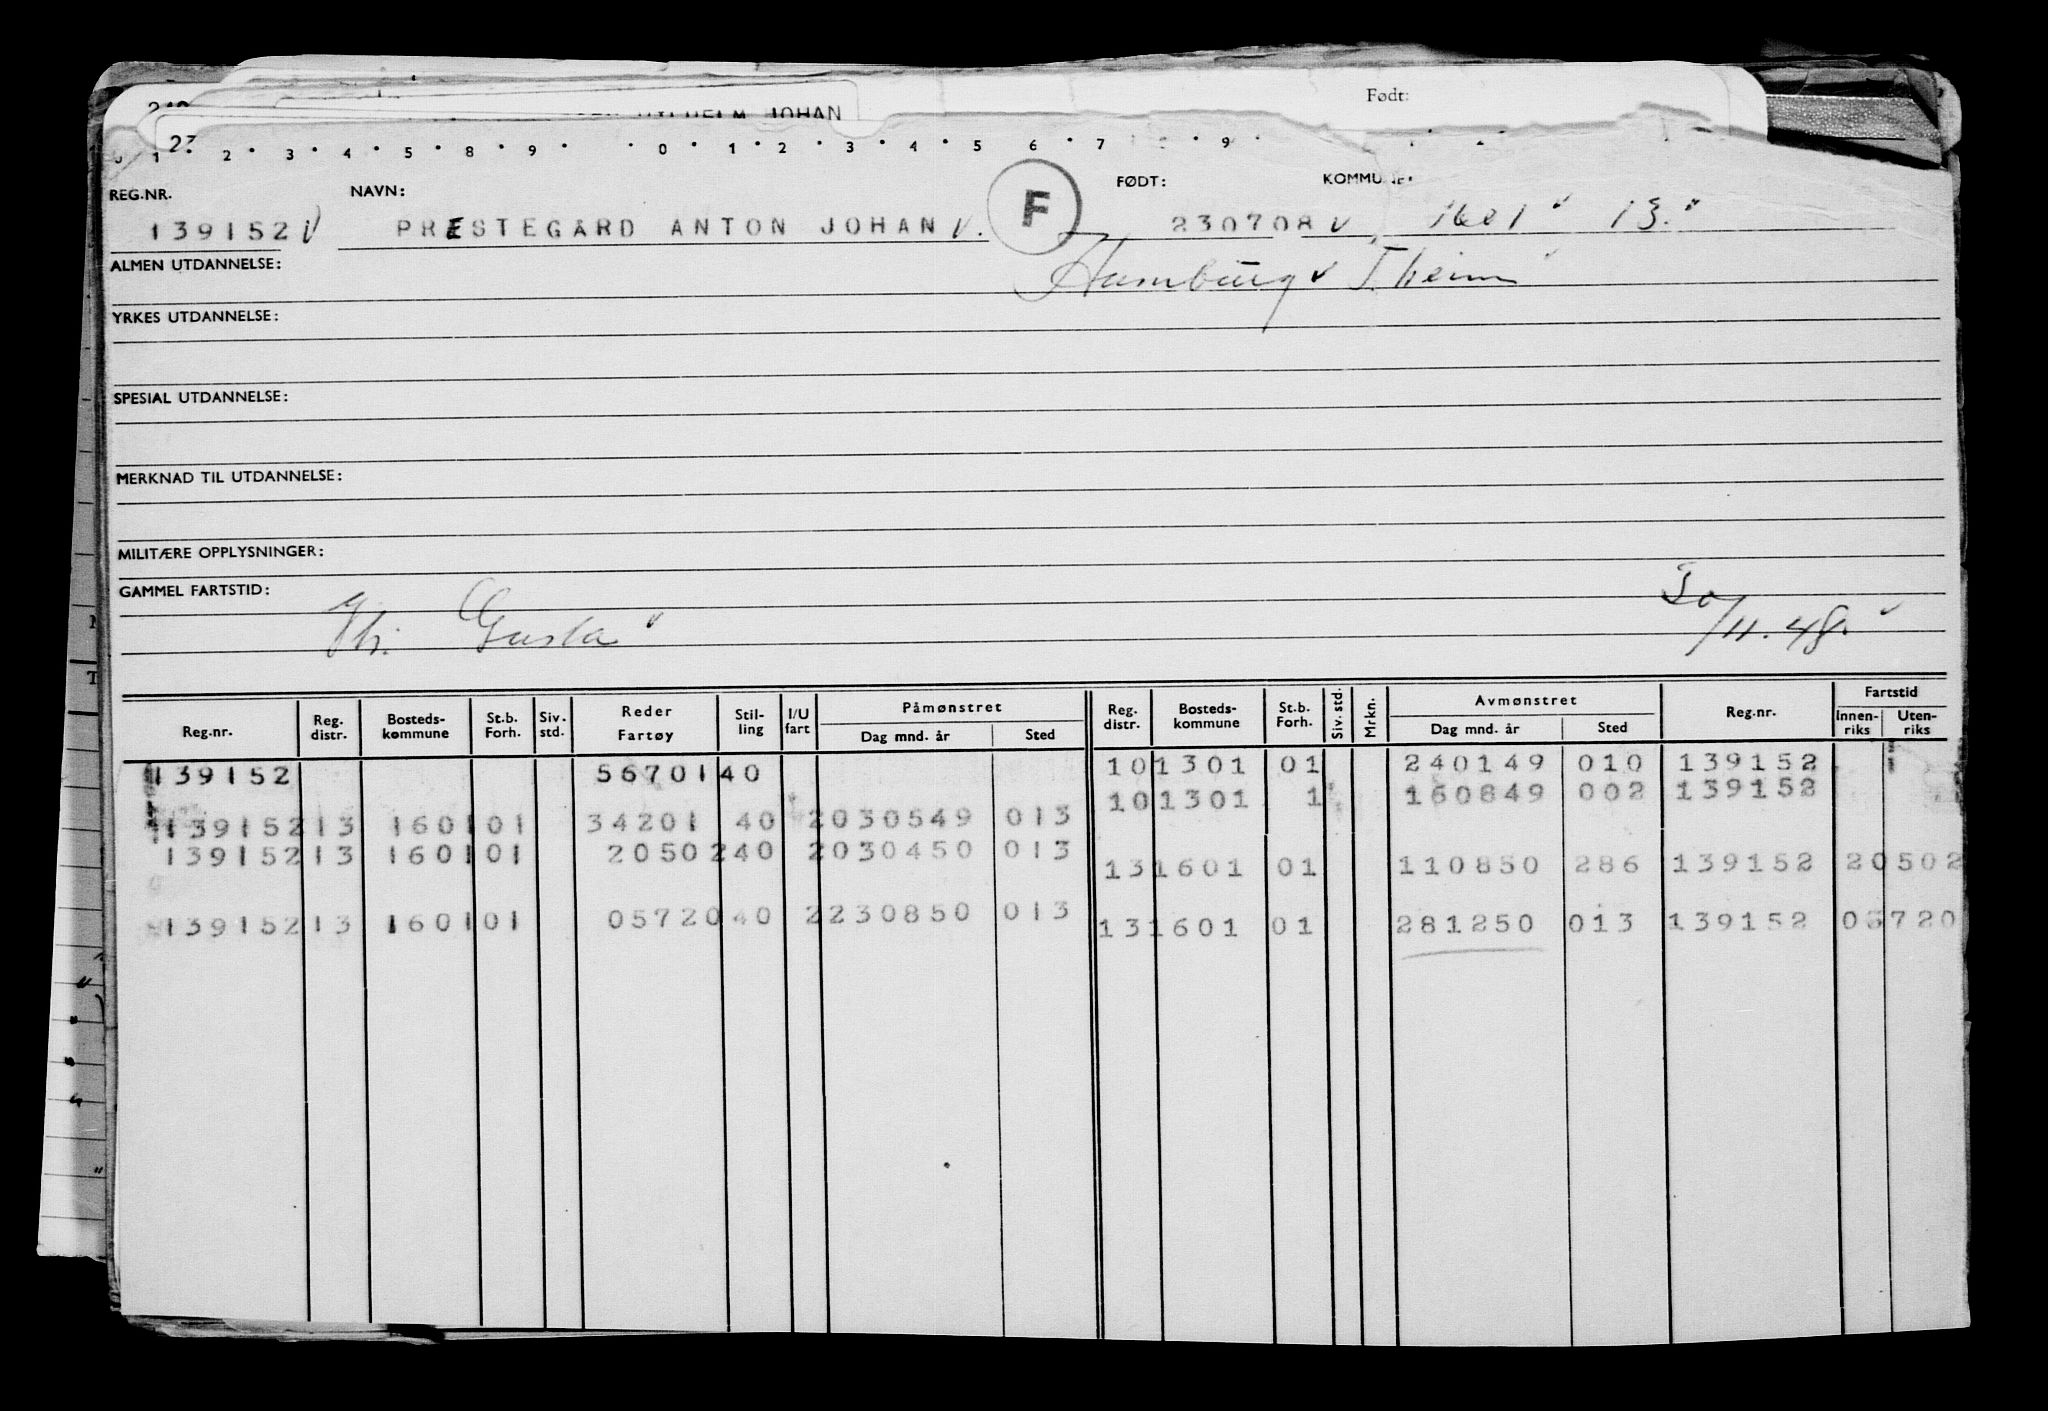 Født:
JOHAN
27
1 2 3 4 5 8 9 0 1 2 3 4 5 6 7 9
REG.NR. NAVN: FØDT: KOMMUNE:
139152 V PRESTEGARD ANTON JOHAN V. F 230708 V 1601 " 13."
ALMEN UTDANNELSE: Hamburg V T.heim
YRKES UTDANNELSE:
SPESIAL UTDANNELSE:
MERKNAD TIL UTDANNELSE:
MILITÆRE OPPLYSNINGER:
GAMMEL FARTSTID:
30/11.48.
Reg.nr. Reg. distr. Bosteds-kommune St.b. Forh. Siv. std. Reder Fartøy Stil-ling I/U fart Påmønstret Dag mnd. år Sted Reg. distr. Bosteds-kommune St.b. Forh. Siv. std. Mrkn. Avmønstret Dag mnd. år Sted Reg.nr. Fartstid Innen-riks Uten-riks
139152 56701 40 10 1301 01 240149 010 139152
10 1301 1 160849 002 139152
139152 13 1601 01 34201 40 2 030549 013
139152 13 1601 01 20502 40 2 030450 013
13 1601 01 110850 286 139152 20502
139152 13 1601 01 05720 40 2 230850 013
13 1601 01 281250 013 139152 05720